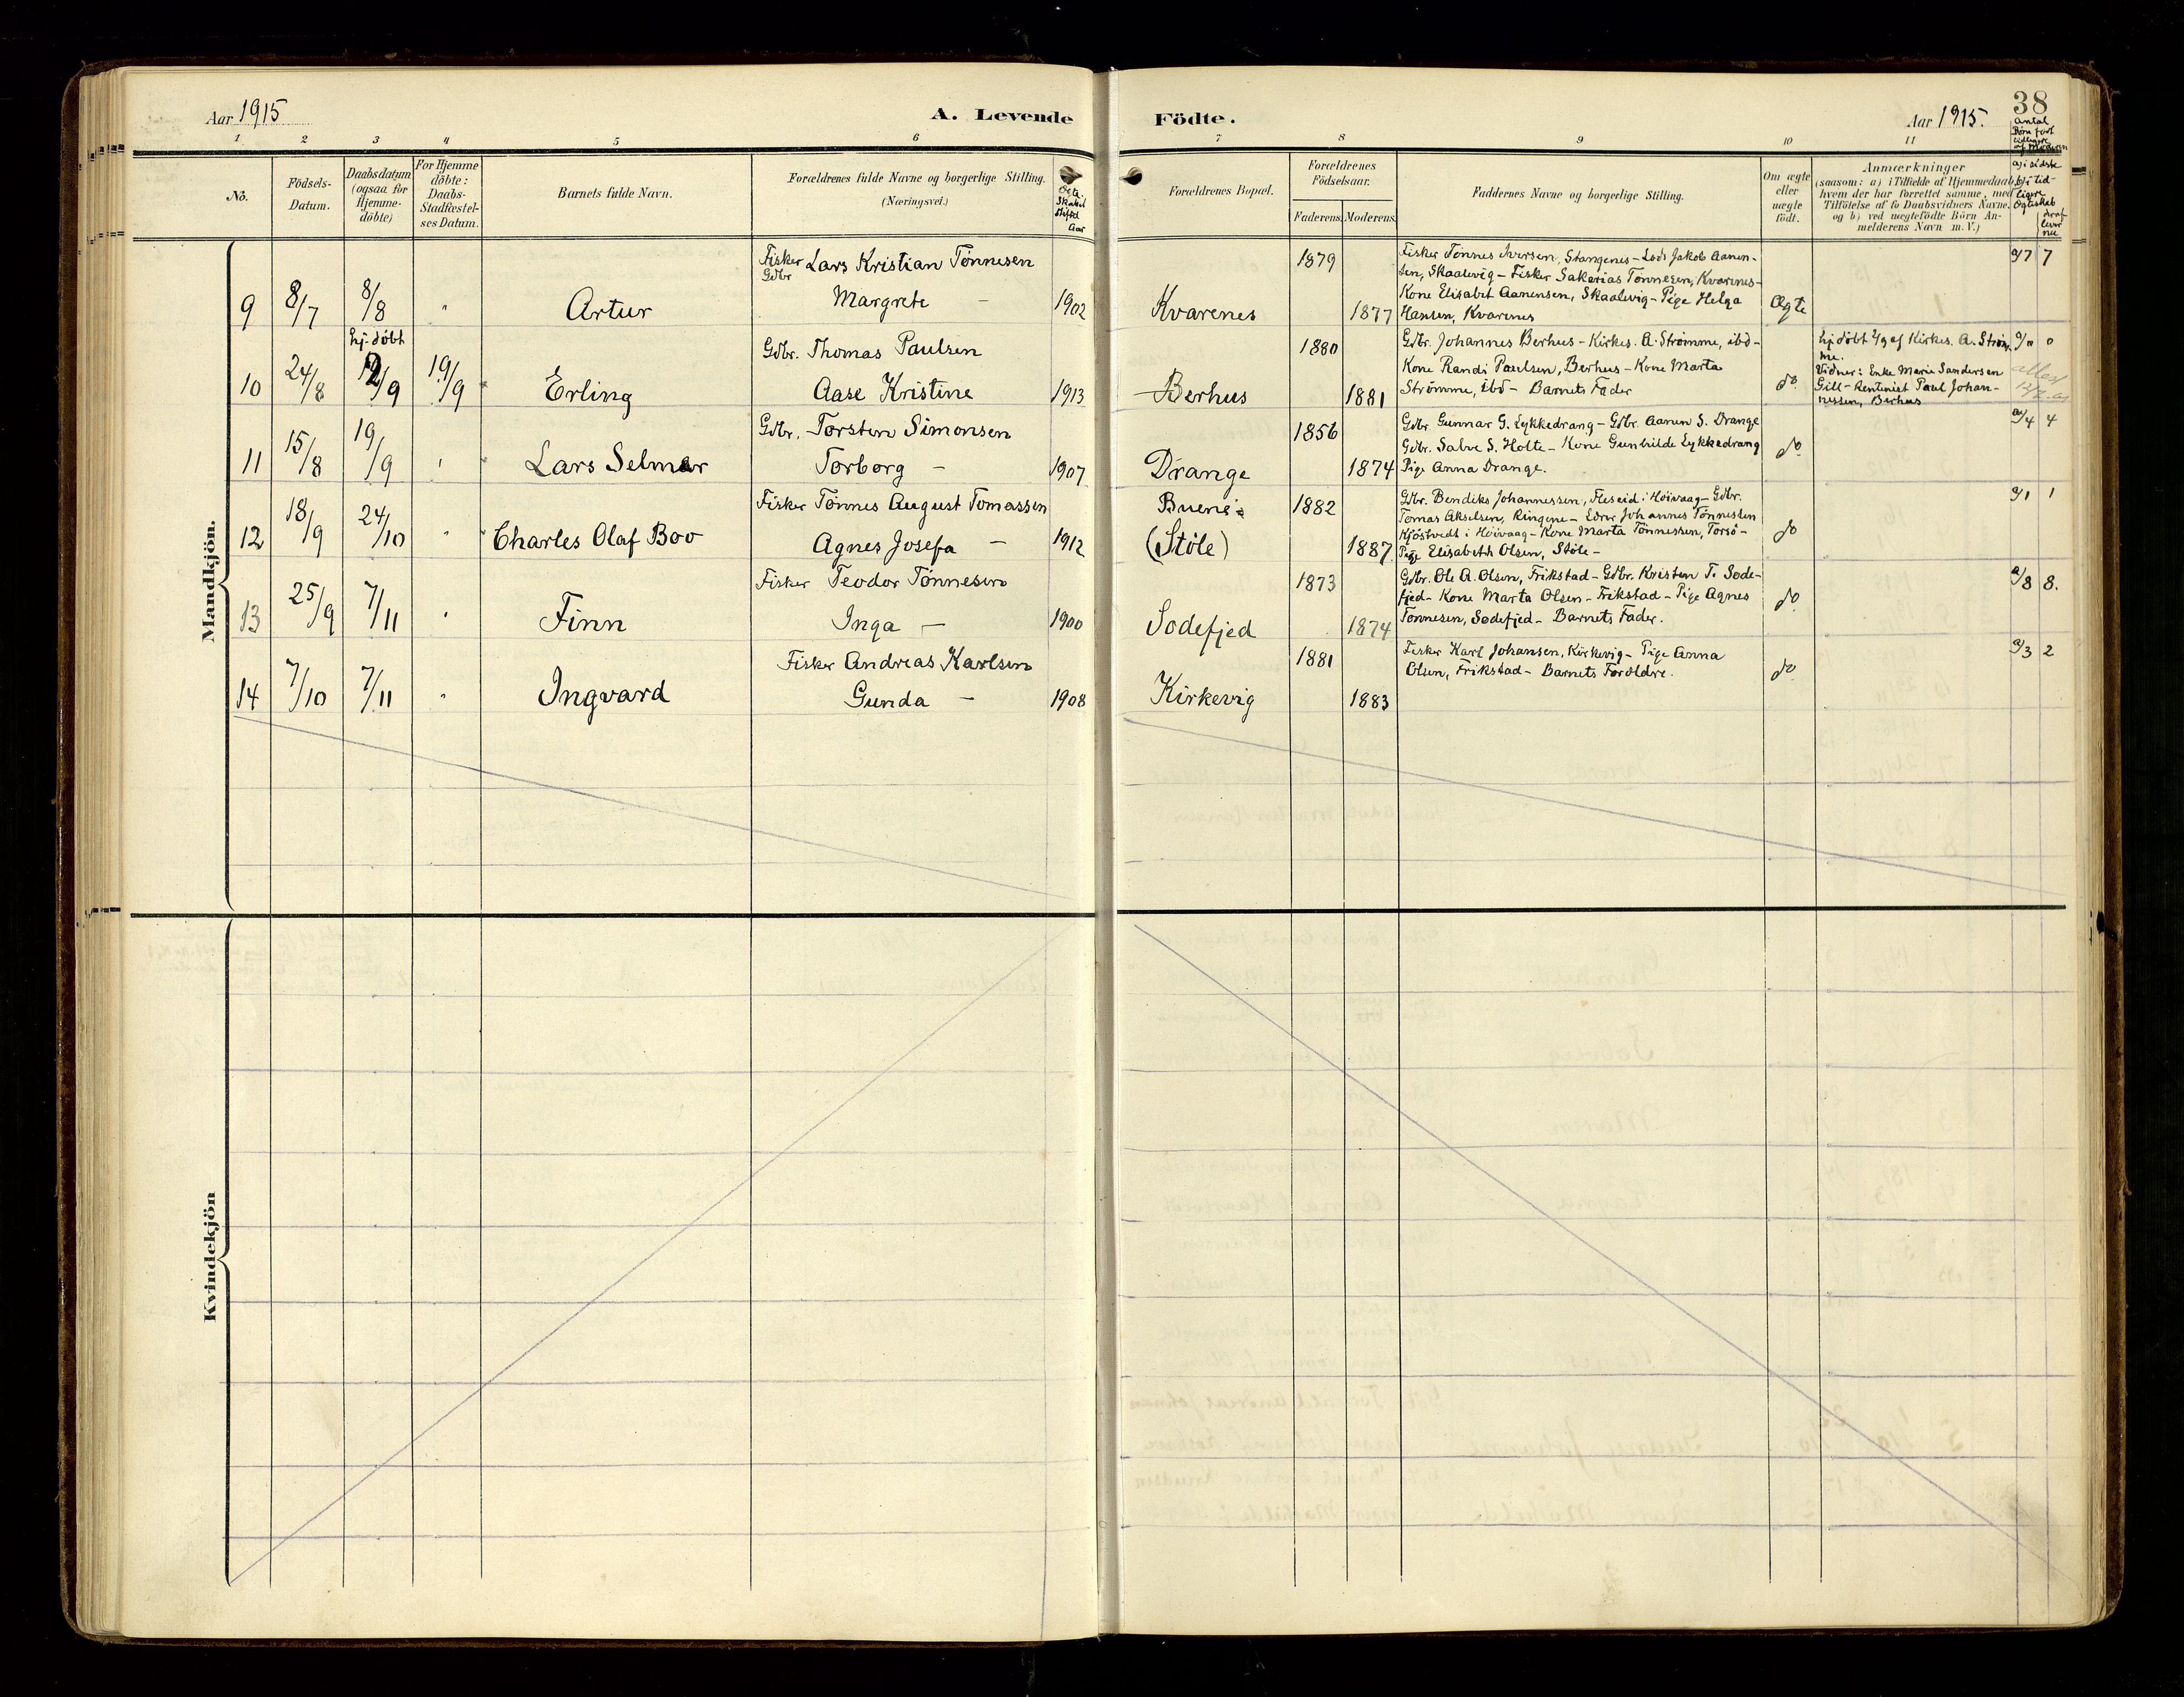 Aar 1915
A. Levende
Födte.
Aar 1915.
38
Antal
Børn født
tidligere
af Moderen
1 2 3 4 5 6 7 8 9 10 11
No.
Födsels-
Datum.
Daabsdatum
(ogsaa for
Hjemme-
döbte)
For Hjemme
döbte:
Daabs-
Stadfestel-
ses Datum.
Barnets fulde Navn.
Forældrenes fulde Navne og borgerlige Stilling.
(Næringsvei.)
Ekte-
skabet
stiftet
Aar
Forældrenes Bopæl.
Forældrenes
Födselsaar.
Faderens. Moderens.
Faddernes Navne og borgerlige Stilling.
Om ægte
eller
uægte
födt.
Anmærkninger
(saasom: a) i Tilfælde af Hjemmedaab,
hvem der har forrettet samme, med
Tilföielse af to Daabsvidners Navne,
og b) ved uægtefödte Börn An-
melderens Navn m. V.)
a) i sidste
b) i tid-
ligere
Ægteskab
deraf
lever
nu
Mandkjön.
9 8/7 8/8 " Artur
Fisker Lars Kristian Tönnesen
Gdbr
Margrete — 1902
Kvarenes 1879 1877
Fisker Tönnes Iversen, Stangenes - Lods Jakob Aanen-
sen, Skaalevig - Fisker Sakarias Tönnesen, Kvarenes-
Kone Elisabet Aanensen, Skaalevig - Pige Helga
Hansen, Kvarenes
Ægte
a/7 7
hj. döbt
10 24/8 2/9 19/9 Erling
Gdbr. Thomas Paulsen
Aase Kristine 1913
Berhus 1880 1881
Gdbr. Johannes Berhus - Kirkes. A. Strömme, ibd -
Kone Randi Paulsen, Berhus - Kone Marta
Strömme, ibd - Barnets Fader
do
hj. döbt 2/9 af Kirkes. A. Ström-
me.
Vidner: Enke Marie Sandersen
Gill - Rentenist Paul Johan-
nessen, Berhus
a/0 0
11 15/8 19/9 " Lars Selmer
Gdbr. Torsten Simonsen
Torborg — 1907
Drange 1856 1874
Gdbr. Gunnar G. Lykkedrang - Gdbr. Aanen S. Drange
Gdbr. Salve S. Holte - Kone Gunhilde Lykkedrang
Pige Anna Drange.
do
a/4 4
12 18/9 24/10 " Charles Olaf Boo
Fisker Tönnes August Tomassen
Agnes Josefa — 1912
Buene
(Støle) 1882 1887.
Gdbr. Bendiks Johannessen, Fleseid i Höivaag - Gdbr.
Tomas Akselsen, Ringene - Johannes Tönnessen
Kjöstvedt i Höivaag - Kone Marta Tönnessen, Torsö -
Pige Elisabeth Olsen, Støle -
do
a/1 1
13 25/9 7/11 " Finn
Fisker Teodor Tönnesen
Inga — 1900
Sodefjed 1873 1874
Gdbr. Ole A. Olsen, Frikstad - Gdbr. Kristen T. Sode-
fjed - Kone Marta Olsen - Frikstad - Pige Agnes
Tönnesen, Sodefjed - Barnets Fader.
do
a/8 8.
14 7/10 7/11 " Ingvard
Fisker Andreas Karlsen
Gunda — 1908
Kirkevig 1881 1883
Fisker Karl Johansen, Kirkevig - Pige Anna
Olsen, Frikstad - Barnets Foröldre.
do
a/3 2
Kvindekjön